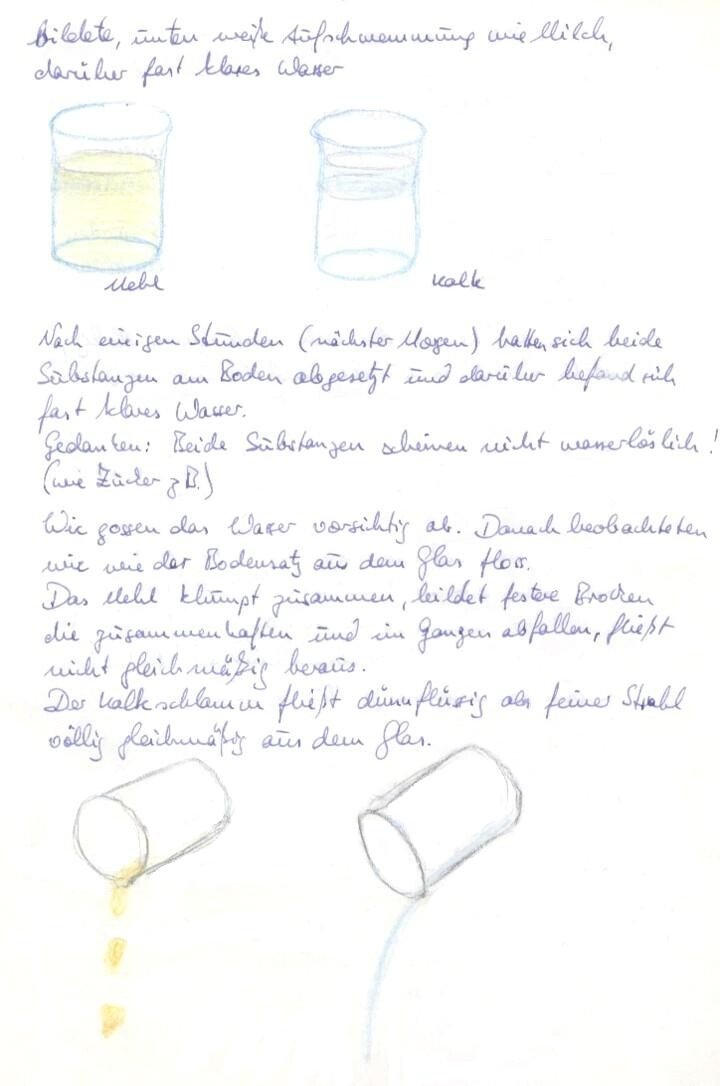 bildete, unten weiße Aufschwemmung wie Milch,
darüber fast klares Wasser
Mehl
Kalk
Nach einigen Stunden (nächster Morgen) hatten sich beide
Substanzen am Boden abgesetzt und darüber befand sich
fast klares Wasser.
Gedanken: Beide Substanzen scheinen nicht wasserlöslich!
(wie Zucker z.B.)
Wir gossen das Wasser vorsichtig ab. Danach beobachteten
wir wie der Bodensatz aus dem Glas floss.
Das Mehl klumpt zusammen, bildet festere Brocken
die zusammenhaften und im Ganzen abfallen, fließt
nicht gleichmäßig heraus.
Der Kalkschlamm fließt dünnflüssig als feiner Strahl
völlig gleichmäßig aus dem Glas.